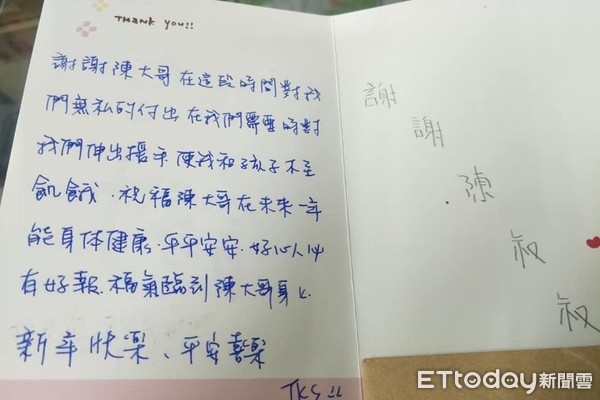 THANK YOU!!
謝謝陳大哥在這段時間對我
們無私的付出在我們需要時對
我們伸出援手使我和孩子不至
飢餓.祝福陳大哥在未來一年
能身体健康.平平安安.好心人必
有好報.福氣臨到陳大哥身上.
新年快樂、平安喜樂
TKS!!
謝
謝
陳
叔
叔
ETtoday新聞雲